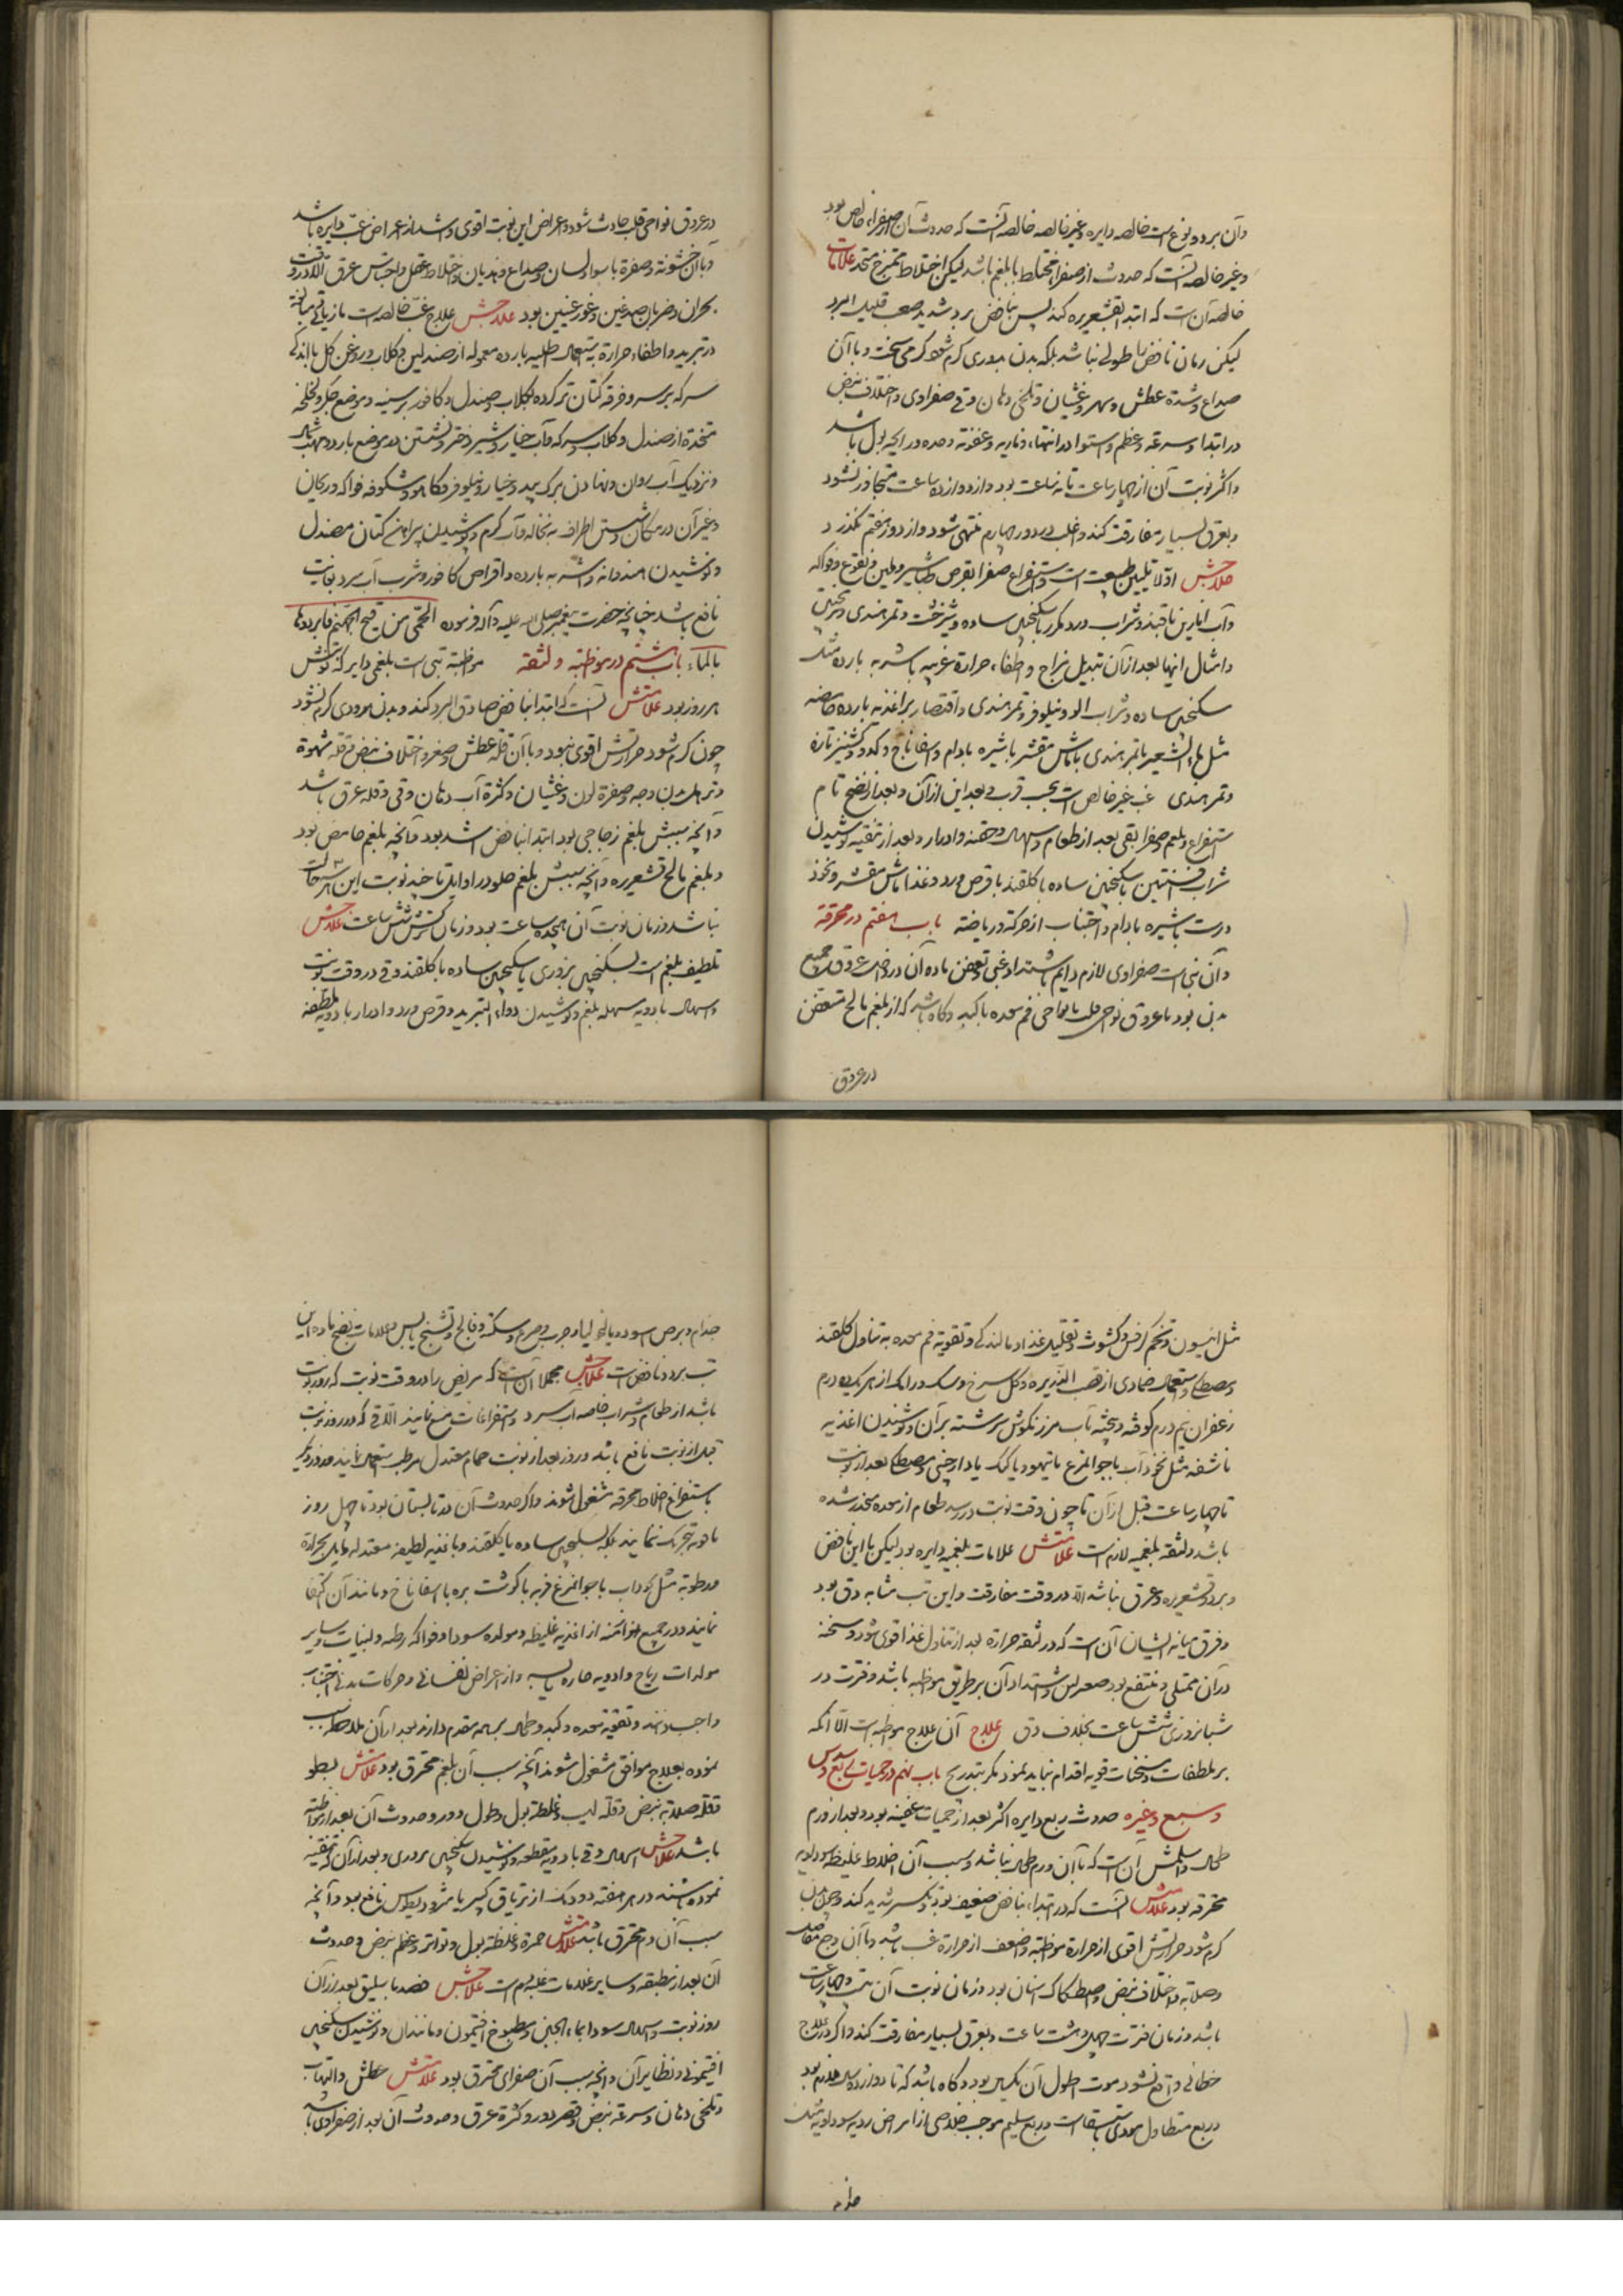 وآن بر دو نوع است خالصه دایره وغیر خالصه خالصه آنست که حدوث آن از صفراء خالص بود
وغیر خالصه آنست که حدوث از صفراء مختلط با بلغم باشد لیکن اختلاط ممتزج متحد علامات
خالصه آن است که ابتدا بقشعریره کند پس بنافض برد شدید صعب قلیل البرد
لیکن زمان نافض را طولی نباشد بلکه بدن بزودی گرم شود گرمی سخت وبا آن
صداع وشدة عطش وسهر وغشیان وتلخی دهان وقی صفراوی واختلاف نبض
در ابتدا وسرعة وعظم واستوا در انتها، وناریه وعفونة وحده در رایحه بول باشد
واکثر نوبت آن از چهار ساعت تا نه ساعت بود واز دوازده ساعت متجاوز نشود
وبعرق بسیار مفارقت کند واغلب در دور چهارم منتهی شود واز دور هفتم نگذرد
علاجش اولا تلیین طبیعت است واستفراغ صفرا بقرص طباشیر ملین ونقوع فواکه
وآب انارین با قند وشراب ورد مکرر با سکنجبین ساده وشیرخشت وتمر هندی وترنجبین
وامثال اینها بعد از آن تبدیل مزاج واطفاء حرارة غریبه باشربه بارده مثل
سکنجبین ساده وشراب الو ونیلوفر وتمر هندی واقتصار بر اغذیه بارده حامضه
مثل ماء الشعیر با تمر هندی یا ماش مقشر با شیره بادام واسفاناخ وکدو وکشنیز تازه
وتمر هندی غب غیر خالص است بحسب قرب وبعد این از آن وبعد از نضج تام
استفراغ بلغم وصفرا بقی بعد از طعام واسهال وحقنه وادرار وبعد از تنقیه نوشیدن
شراب افسنتین با سکنجبین ساده با گلقند با قرص ورد وغذا ماش مقشر ونخود
درست با شیره بادام واجتناب از حرکة وریاضة باب هفتم در محرقة
وآن تبی است صفراوی لازم دایم باشتداد غبی وتعفن ماده آن در داخل عروق جمیع
بدن بود یا عروق نواحی قلب یا نواحی فم معده یا کبد وگاه باشد که از بلغم مالح متعفن
در عروق
در عروق نواحی قلب حادث شود واعراض این نوبت اقوی واشد از اعراض غب دایره باشد
وبا آن خشونة وصفرة یا سواد لسان وصداع وهذیان واختلاط عقل واحتباس عرق الا در وقت
بحران وضربان صدغین وغور عینین بود علاجش علاج غب خالصه است با زیادتی مبالغة
در تبرید واطفاء حرارة باستعمال اطلیه بارده معموله از صندلین وگلاب وروغن گل با اندکی
سرکه بر سر وخرقه کتان تر کرده بگلاب وصندل وکافور بر سینه وموضع جگر ولخلخه
متخذة از صندل وگلاب وسرکه وآب خیار وشیر دختر ونشستن در موضع بارد ومهب شمال
ونزدیک آب روان ونهادن برگ بید وخیار ونیلوفر وکاهو وشکوفه فواکه وریاحین
وغیر آن در مکان وشستن اطراف به نخاله وآب گرم وپوشیدن پیراهن کتان مصندل
ونوشیدن هندوانه واشربه بارده واقراص کافور وشرب آب سرد بغایت
نافع باشد چنانچه حضرت پیغمبر صلی الله علیه وآله فرموده الحمی من فیح الجهنم فابردوها
بالماء باب هشتم در مواظبه ولثقه مواظبه تبی است بلغمی دایر که نوبتش
هر روز بود علامتش آنست که ابتدا بنافض صادق البرد کند وبدن بزودی گرم نشود
چون گرم شود حرارتش اقوی نبود وبا آن قلة عطش وصغر واختلاف نبض وقلة شهوة
وترهل بدن ووجه وصفرة لون وغشیان وکثرة آب دهان وقی وقلة عرق باشد
وآنچه سببش بلغم زجاجی بود ابتدا نافض اشد بود وآنچه بلغم حامض بود
وبلغم مالح قشعریره وآنچه سببش بلغم حلو در اوایل تا چند نوبت این هر سه حالت
نباشد وزمان نوبت آن هجده ساعت بود وزمان فترش شش ساعت علاجش
تلطیف بلغم است بسکنجبین بزوری یا سکنجبین ساده با گلقند وقی در وقت نوبت
واسهال بادویه مسهله بلغم ونوشیدن دواء التربد وقرص ورد وادرار بادویه ملطفه
مثل انیسون وتخم کرفس وکشوث وتقلیل غذا ومالندگی وتقویة فم معده به تناول گلقند
ومصطکی واستعمال ضمادی از قصب الذریره وگل سرخ وسک ورامک از هر یک ده درم
زعفران نیم درم کوفته وبیخته بآب مرزنگوش سرشته بر آن ونوشیدن اغذیه
ناشفه مثل نخودآب با جوامرغ یا تیهو یا کبک با دارچینی ومصطکی بعد از نوبت
تا چهار ساعت قبل از آن تا چون وقت نوبت در رسد طعام از معده منحدر شده
باشد ولثقه بلغمیه لازم است علامتش علامات بلغمیه دایره بود لیکن با این نافض
وبرد وقشعریره وعرق نباشد الا در وقت مفارقت واین تب مشابه دق بود
وفرق میانه ایشان آن است که در لثقه حرارة بعد از تناول غذا قوی شود وسحنه
در آن ممتلی ومنتفخ بود وصغر لین واشتداد آن بر طریق مواظبه باشد وفترت در
شبانروزی شش ساعت بخلاف دق علاج آن علاج مواظبه است الا آنکه
بر ملطفات ومسخنات قویه اقدام نباید نمود مگر بتدریج باب نهم در حمیات ربع وخمس وسدس
وسبع وغیره حدوث ربع دایره اکثر بعد از حمیات عفنیه بود وبعد از ورم
طحال واسلمش آن است که با آن ورم طحال نباشد وسبب آن اخلاط غلیظه سوداویه
محترقه بود علامتش آنست که در ابتداء، نافض ضعیف بود وتکسر شدید کند وچون بدن
گرم شود حرارتش اقوی از حرارة مواظبه واضعف از حرارة غب باشد وبا آن وجع مفاصل
وصلابة واختلاف نبض واصطکاک اسنان بود وزمان نوبت آن بیست وچهار ساعت
باشد وزمان فترت چهل وهشت ساعت وبعرق بسیار مفارقت کند واگر در علاج
خطائی واقع نشود مدت اطول آن یکسال بود وگاه باشد که تا دوازده سال ملازم بود
وربع متطاول مودی باستسقا است وربع سلیم موجب خلاصی از امراض ردیه سوداویه مثل
جذام
جذام وبرص اسود ومالیخولیا وجرب وصرع وسکته وفالج وتشنج یابس وعلامات نضج ماده این
تب برد نافض است علاجش مجملا آن است که مریض را در وقت نوبت که روز نوبت
باشد از طعام وشراب خاصه آب سرد واستفراغات منع نمایند الا قی که در روز نوبت
قبل از نوبت نافع باشد وروز بعد از نوبت حمام معتدل مرطب استعمال نمایند وروز دیگر
باستفراغ اخلاط محرقه مشغول شوند واگر حدوث آن در تابستان بود تا چهل روز
ماده تحریک ننمایند بلکه بسکنجبین ساده با گلقند وباغذیه لطیفه معتدله مایل بحرارة
ورطوبة مثل نخودآب با جوامرغ فربه یا گوشت بره با اسفاناخ ومانند آن اکتفا
نمایند ودر جمیع ازمنه از اغذیه غلیظه ومولده سودا وفواکه رطبه ولبنیات وسایر
مولدات ریاح وادویه حاره یابسه واز اعراض نفسانی وحرکات بدنی اجتناب
واجب دانند وتقویة معده وکبد وطحال بر همه مقدم دارند وبعد از آن ملاحظه سبب
نموده بعلاج موافق مشغول شوند آنچه سبب آن بلغم محترق بود علامتش بطو
وقلة صلابة نبض وقلة لهیب وغلظة بول وطول دور وحدوث آن بعد از مواظبة
باشد علاجش اسهال وقی بادویه مقطعه ونوشیدن سکنجبین بزوری وبعد از آن که تنقیه
نموده باشند در هر هفته دو دانگ از تریاق کبیر یا مثرودیطوس نافع بود وآنچه
سبب آن دم محترق باشد علامتش حمرة وغلظة بول وتواتر وعظم نبض وحدوث
آن بعد از مطبقه وسایر علامات غلبه دم است علاجش فصد باسلیق بعد از آن
روز نوبت واسهال سودا بماء الجبن ومطبوخ افتیمون ومانند آن ونوشیدن سکنجبین
افتیمونی ونظایر آن وآنچه سبب آن صفرای محترق بود علامتش عطش والتهاب
وتلخی دهان وسرعة نبض وقصر دور وکثرة عرق وحدوث آن بعد از صفراوی باشد